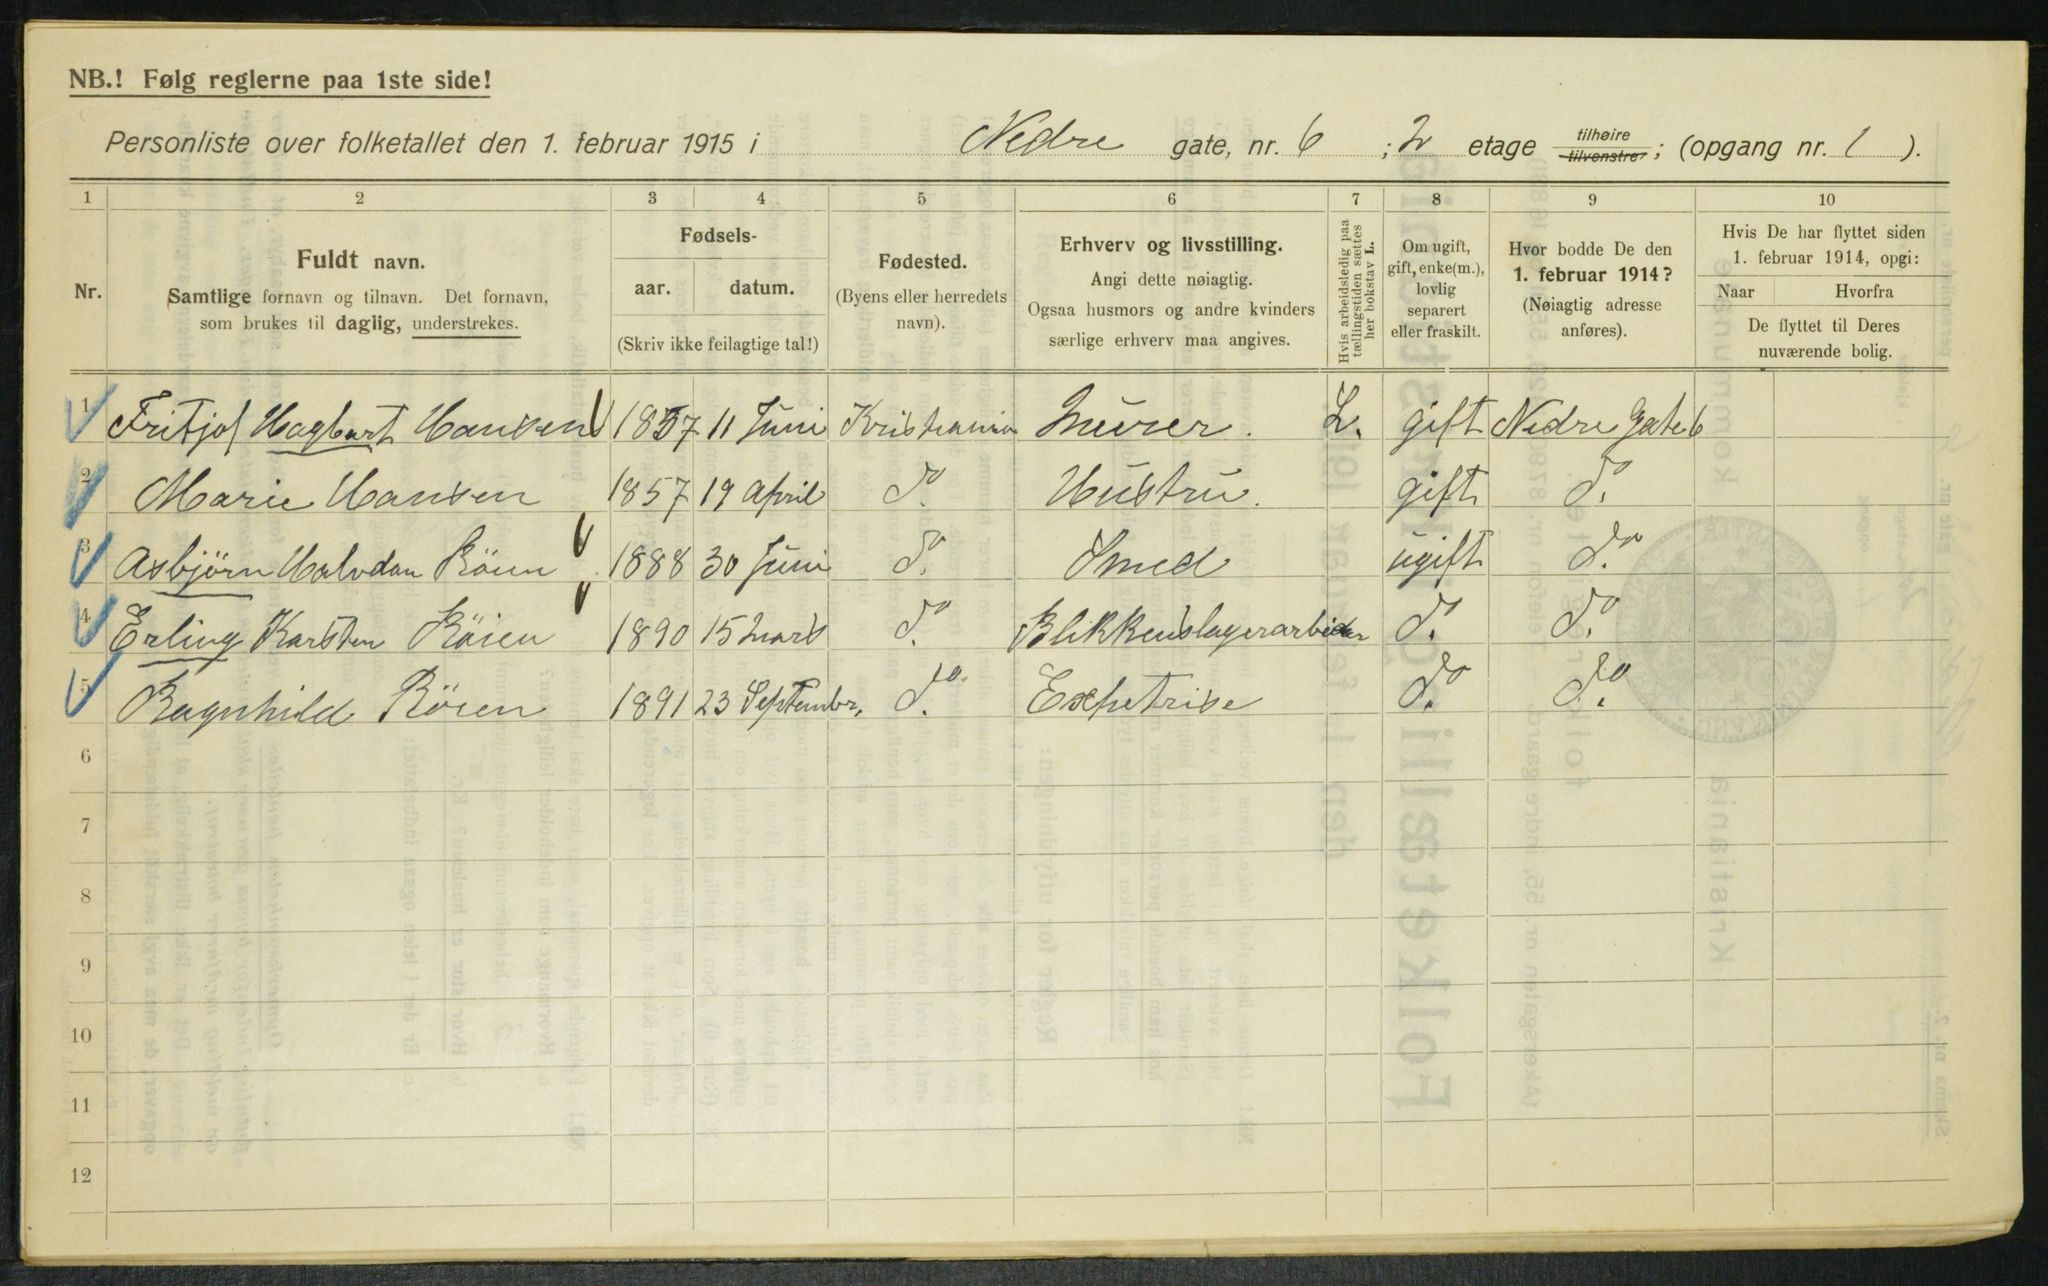 NB.! Følg reglerne paa 1ste side!
Personliste over folketallet den 1. februar 1915 i Nedre gate, nr. 6 ; 2 etage tilhøire tilvenstre; (opgang nr. 1 ).
1 2 3 4 5 6 7 8 9 10
Nr.
Fuldt navn.
Samtlige fornavn og tilnavn. Det fornavn,
som brukes til daglig, understrekes.
Fødsels-
aar. datum.
(Skriv ikke feilagtige tal!)
Fødested.
(Byens eller herredets
navn).
Erhverv og livsstilling.
Angi dette nøiagtig.
Ogsaa husmors og andre kvinders
særlige erhverv maa angives.
Hvis arbeidsledig paa
tællingstiden sættes
her bokstav L.
Om ugift,
gift, enke(m.),
lovlig
separert
eller fraskilt.
Hvor bodde De den
1. februar 1914?
(Nøiagtig adresse
anføres).
Hvis De har flyttet siden
1. februar 1914, opgi:
Naar Hvorfra
De flyttet til Deres
nuværende bolig.
1 Fritjof Hagbart Hansen 1857 11 Juni Kristiania Murer. L. gift Nedre Gate 6
2 Marie Hansen 1857 19 April do. Hustru. gift do.
3 Asbjørn Halvdan Röien 1888 30 Juni do. Smed ugift do.
4 Erling Karsten Röien 1890 15 Mars do. Blikkenslagerarbeider do. do.
5 Ragnhild Röien 1891 23 September, do. Expetrise do. do.
6
7
8
9
10
11
12